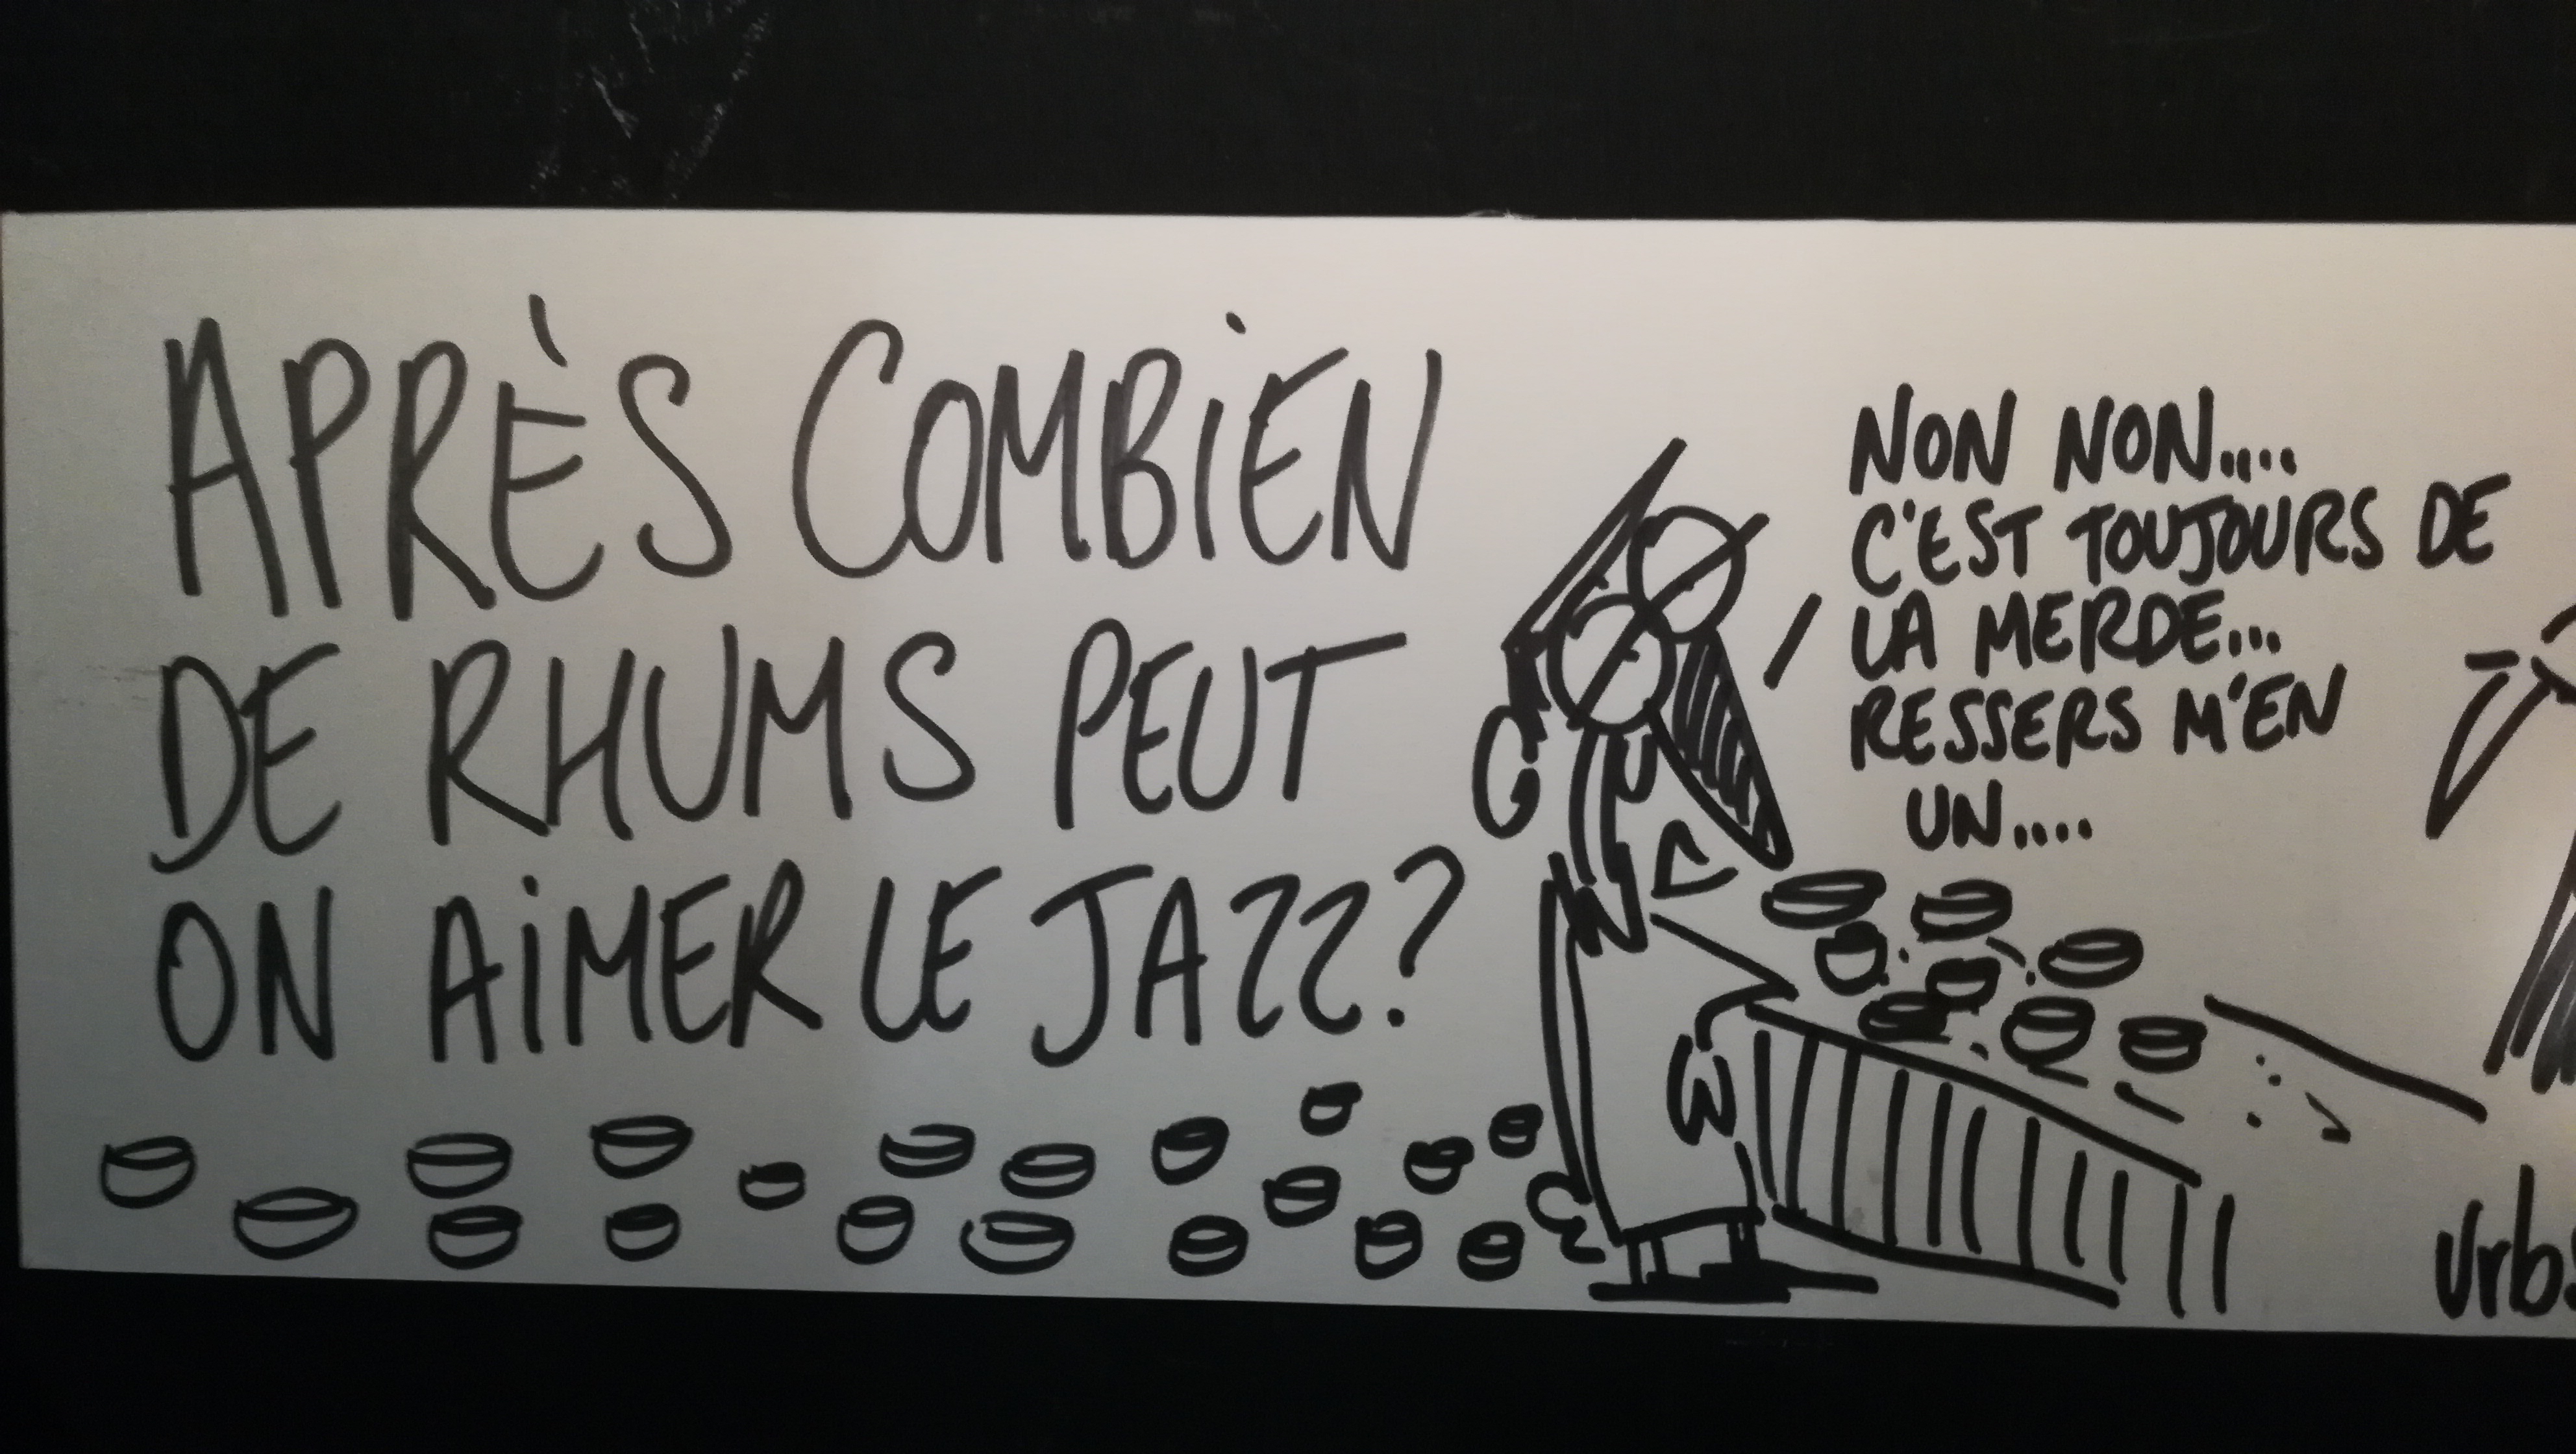 APRÈS COMBiEN
DE RHUMS PEUT
ON AiMER LE JAZZ?
NON NON....
C'EST TOUJOURS DE
LA MERDE...
RESSERS M'EN
UN....